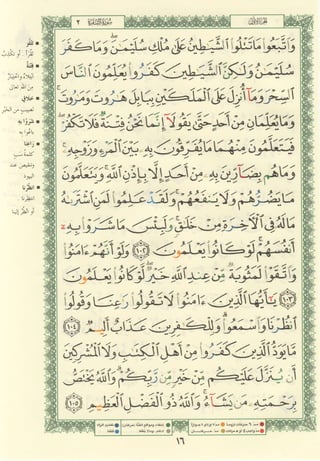 سُورَةُ البَقَرَةِ ٢
وَاتَّبَعُوا مَا تَتْلُوا الشَّيَاطِينُ عَلَىٰ مُلْكِ سُلَيْمَٰنَ ۖ وَمَا كَفَرَ
سُلَيْمَٰنُ وَلَٰكِنَّ الشَّيَاطِينَ كَفَرُوا يُعَلِّمُونَ النَّاسَ
السِّحْرَ وَمَا أُنزِلَ عَلَى الْمَلَكَيْنِ بِبَابِلَ هَٰرُوتَ وَمَٰرُوتَ ۚ
وَمَا يُعَلِّمَانِ مِنْ أَحَدٍ حَتَّىٰ يَقُولَا إِنَّمَا نَحْنُ فِتْنَةٌ فَلَا تَكْفُرْ ۖ
فَيَتَعَلَّمُونَ مِنْهُمَا مَا يُفَرِّقُونَ بِهِ بَيْنَ الْمَرْءِ وَزَوْجِهِ ۚ
وَمَا هُم بِضَارِّينَ بِهِ مِنْ أَحَدٍ إِلَّا بِإِذْنِ اللَّهِ ۚ وَيَتَعَلَّمُونَ
مَا يَضُرُّهُمْ وَلَا يَنفَعُهُمْ ۚ وَلَقَدْ عَلِمُوا لَمَنِ اشْتَرَىٰهُ
مَا لَهُ فِي الْآخِرَةِ مِنْ خَلَٰقٍ ۚ وَلَبِئْسَ مَا شَرَوْا بِهِ
أَنفُسَهُمْ ۚ لَوْ كَانُوا يَعْلَمُونَ ١٠٢ وَلَوْ أَنَّهُمْ ءَامَنُوا
وَاتَّقَوْا لَمَثُوبَةٌ مِّنْ عِندِ اللَّهِ خَيْرٌ ۖ لَّوْ كَانُوا يَعْلَمُونَ
١٠٣ يَٰأَيُّهَا الَّذِينَ ءَامَنُوا لَا تَقُولُوا رَٰعِنَا وَقُولُوا
انظُرْنَا وَاسْمَعُوا ۗ وَلِلْكَٰفِرِينَ عَذَابٌ أَلِيمٌ ١٠٤
مَّا يَوَدُّ الَّذِينَ كَفَرُوا مِنْ أَهْلِ الْكِتَٰبِ وَلَا الْمُشْرِكِينَ
أَن يُنَزَّلَ عَلَيْكُم مِّنْ خَيْرٍ مِّن رَّبِّكُمْ ۗ وَاللَّهُ يَخْتَصُّ
بِرَحْمَتِهِ مَن يَشَاءُ ۚ وَاللَّهُ ذُو الْفَضْلِ الْعَظِيمِ ١٠٥
١٦